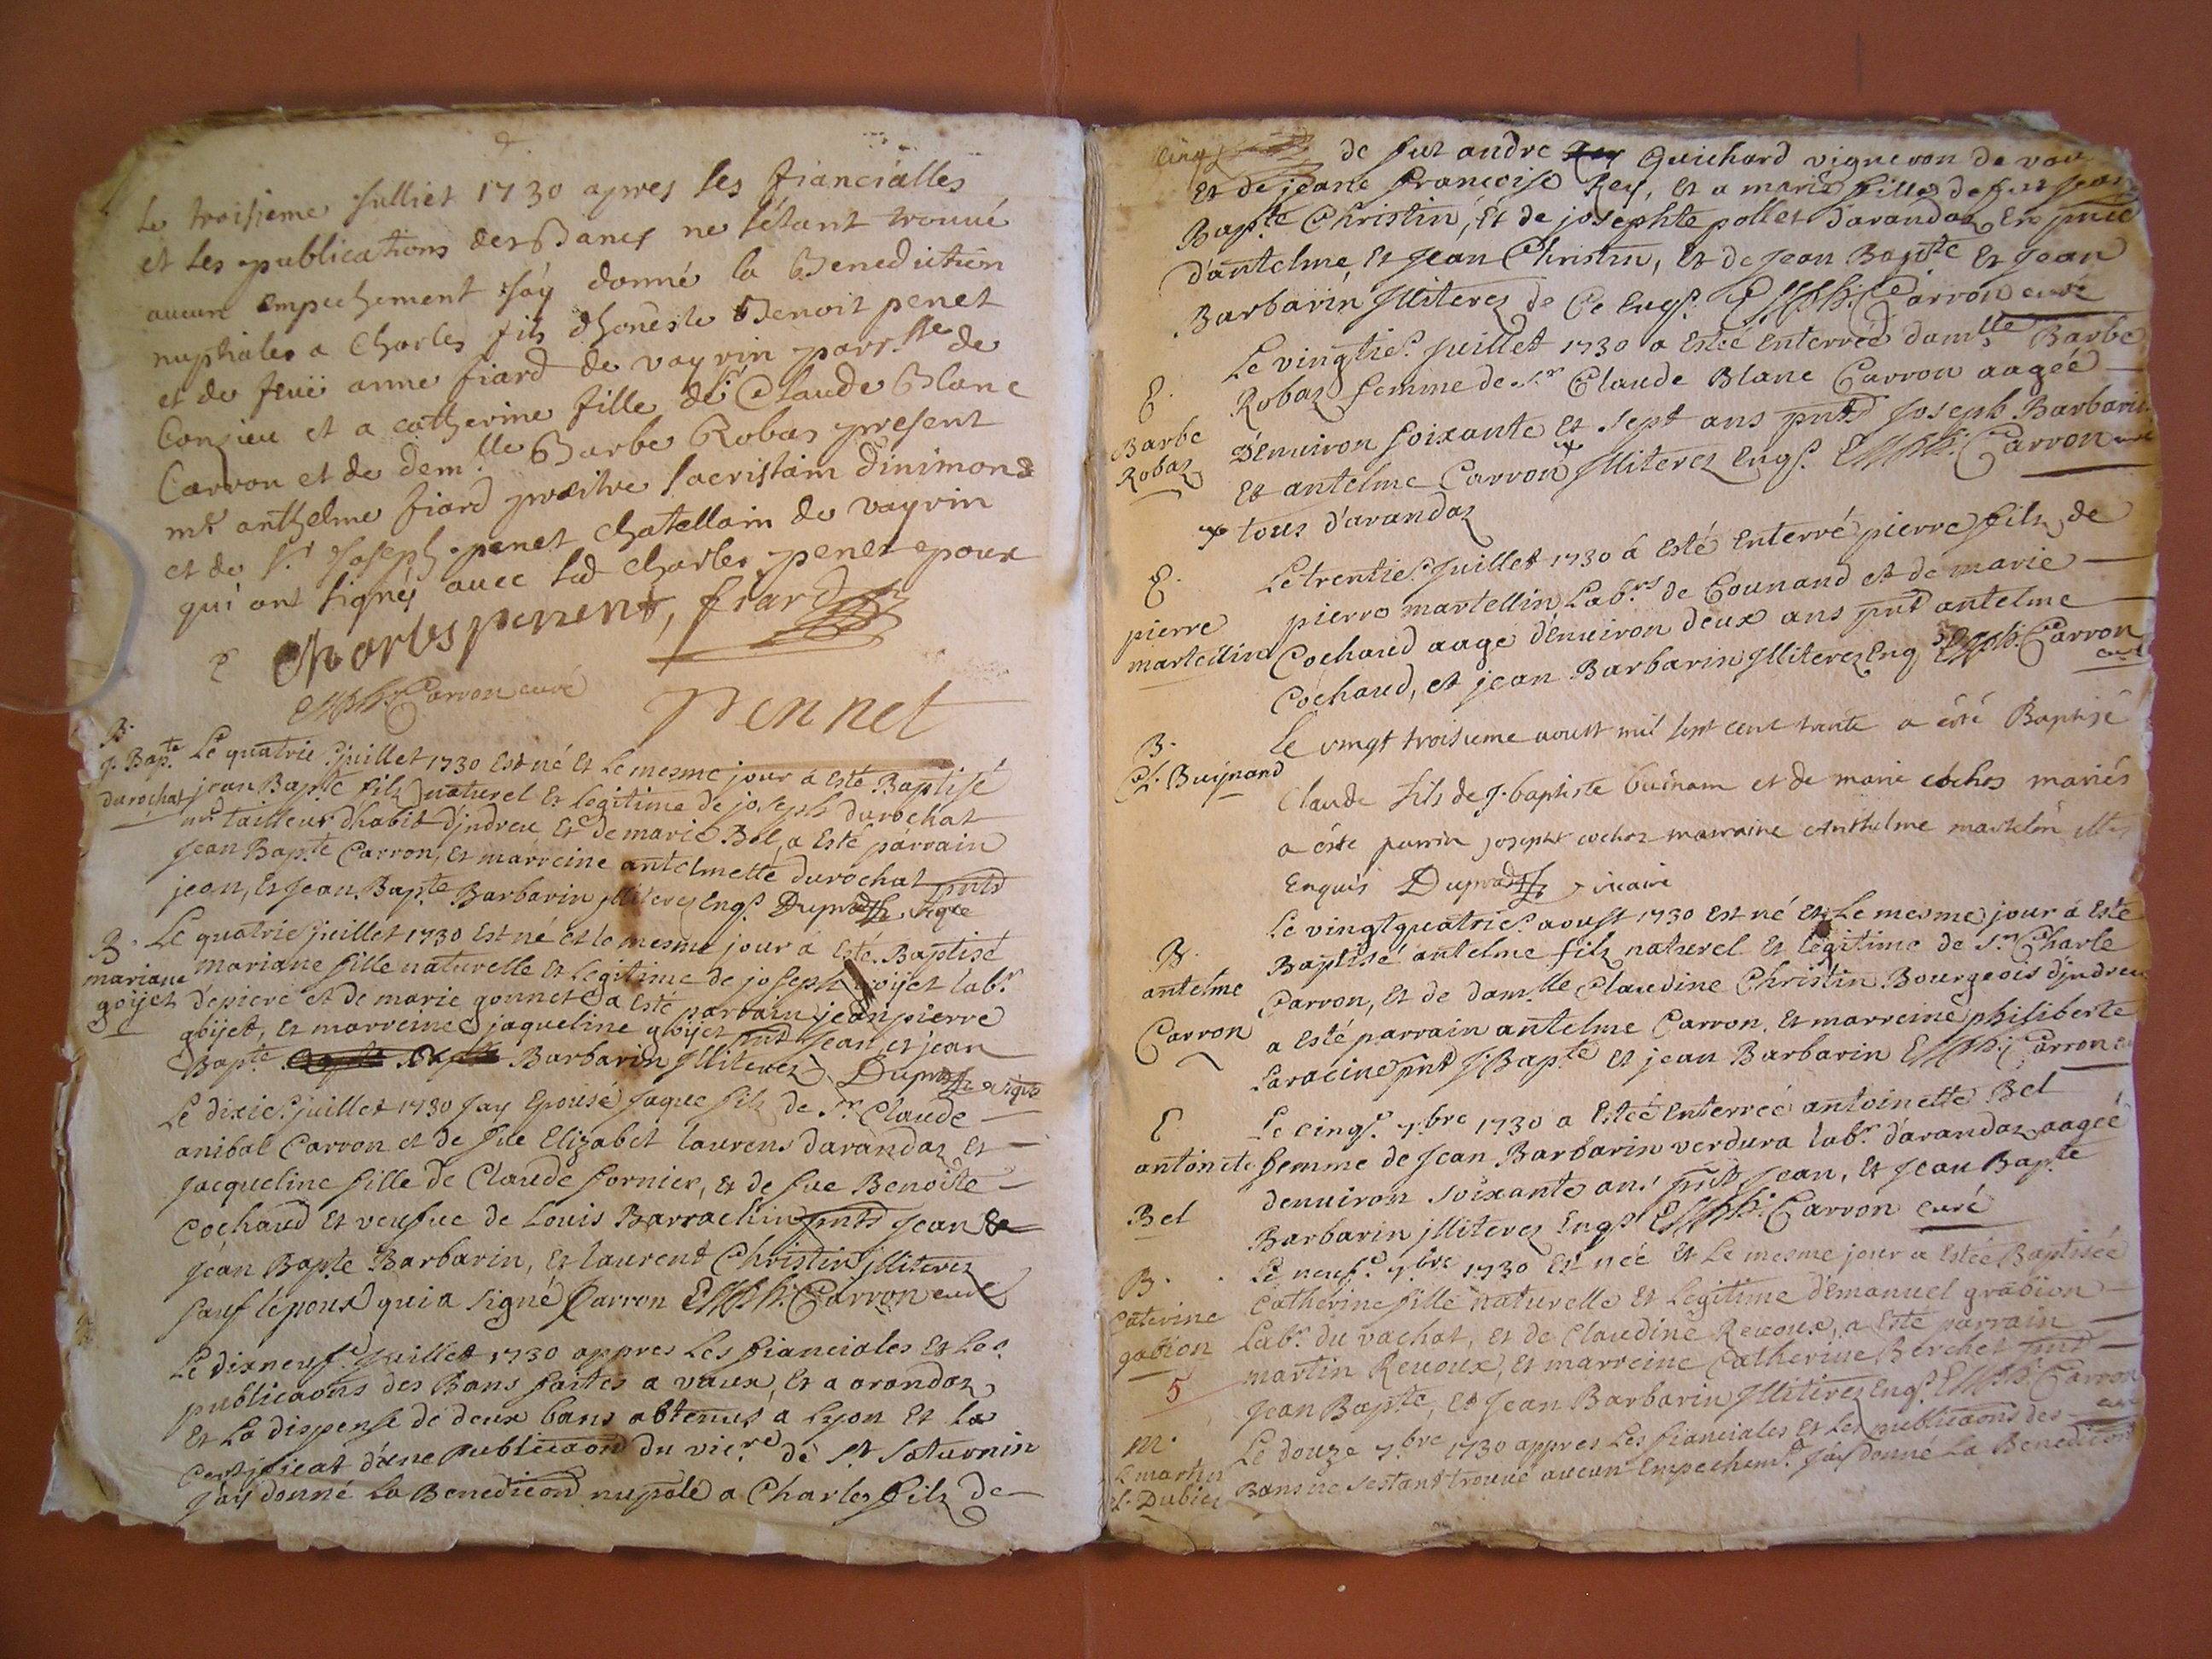 Le troisieme Julliet 1730 apres les fiancialles
et les publications des Bancs ne s'étant trouué
aucun empechement j'ay donné la Benediction
nuptiales a Charles fils d'honeste Benoit penet
et de feüe anne fiard de vayrin parr.sse de
Conzieu et a catherine fille de Sr Claude Blanc
Carron et de dem.lle Barbe Robaz present
mr anthelme fiard preitre sacristain d'inimond
et de Sr Joseph penet chatellain de vayrin
qui ont signés auec led charles penet epoux
Charles penent, fiard
Carron curé
Pennet
B.
J. Bap.te
durochat
Le quatrie juillet 1730 est né et le mesme jour a esté Baptisé
jean Bapte filz naturel et legitime de joseph durochat
mre tailleur d'habit d'jndreu et de marie Bel, a esté parrain
Jean Bapte Carron, et marreine antelmette durochat pnts
jean, et Jean Bapte Barbarin jlliterez Enqs. Duprad
B.
mariane
goijet
Le quatrie juillet 1730 est né et le mesme jour a esté Baptisé
mariane fille naturelle et legitime de joseph goijet labr
de piere et de marie gonnet a esté parrain jean pierre
goijet, et marreine jaqueline goijet pnt Jean et jean
Bapte Barbarin jlliterez Duprad
Le dixie juillet 1730 Jay Epousé Jaque filz de Sr Claude
anibal Carron et de fue Elizabet laurens darandaz et
Jacqueline fille de Claude fornier, et de fue Benoite
Cochaud et veufue de Louis Barrachin pnts Jean &
Jean Bapte Barbarin, et laurent Christin jlliterez
sauf lepoux qui a signé Carron Carron curé
Le dixneufe Juillet 1730 appres Les fianciales Et Les
publicaons des Bans faites a vaux, Et a arandaz
Et La dispense de deux bans obtenus a Lyon Et la
Certificat d'une publicaon du vicre de St Saturnin
Jay donné La Benediction nupale a Charles filz de
de fut andre Guichard vigneron de vau
Et de jeane françoise Rey, et a marie fille de fut Jean
Bapte Christin, Et de josephte pollet darandaz En pnce
dantelme, et Jean Christin, Et de Jean Bapte et Jean
Barbarin jlliterez de Ce Enqs. Carron curé
E.
Barbe
Robaz
Le vingtie. Juillet 1730 a Estée Enterrée dam.lle Barbe
Robaz femme de Sr Claude Blanc Carron aagée
d'Enuiron soixante et sept ans pnts Joseph Barbarin
Et antelme Carron jlliterez Enqs. Carron curé
tous d'arandaz
E.
pierre
martellin
Le trentie. Juillet 1730 a Esté Enterré pierre filz de
pierre martellin Labr. de Counand et de marie
Cochaud aage d'enuiron deux ans pnt antelme
Cochaud, et jean Barbarin jlliterez Enq Carron curé
B.
Cl. Buijnand
le vingt troisieme aoust mil sept cent trante a été Baptisé
Claude fils de J. baptiste buinam et de marie cochos mariés
a éste parrin joseph cochoz marraine Anthelme martelin
Enquis Duprad vicaire
B.
antelme
Carron
Le vingtquatrie. aoust 1730 est né Et Le mesme jour a Este
Baptisé antelme filz naturel Et legitime de Sr Charle
Carron, Et de dam.lle Claudine Christin Bourgeois djndreu
a Esté parrain antelme Carron, Et marreine philiberte
Saracine pnt J. Bapte Et jean Barbarin Carron
E
antoinete
Bel
Le cinqe. 7.bre 1730 a Estée Enterrée antoinette Bel
femme de Jean Barbarin verdura labr. d'arandaz aagée
denuiron soixante ans pnts Jean, Et Jean Bapte
Barbarin jlliterez Enqs Carron curé
B.
Caterine
gabion
5
Le neufe. 7.bre 1730 Est née Et Le mesme jour a Estée Baptisée
Catherine fille naturelle Et Legitime d'Emanuel grabion
Labr. du vachat, Et de Claudine Reuoux, a Esté parrain
martin Reuoux, Et marreine Catherine Berchet pnts
Jean Bapte, Et Jean Barbarin jlliterez Enqs Carron
m.
Dubiez
Le douze 7.bre 1730 appres Les fianciales Et Les publicaons des
Bans ne sestant trouué aucun Empechemt. Jay donné La Benediction